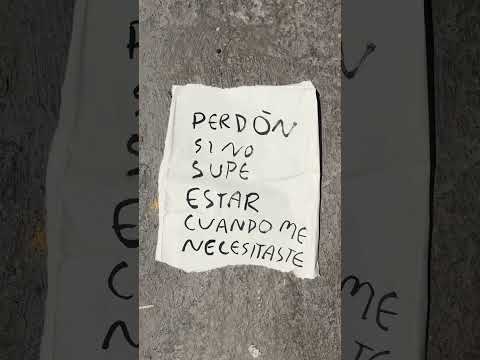 PERDÓN
SI NO
SUPE
ESTAR
CUANDO ME
NECESITASTE